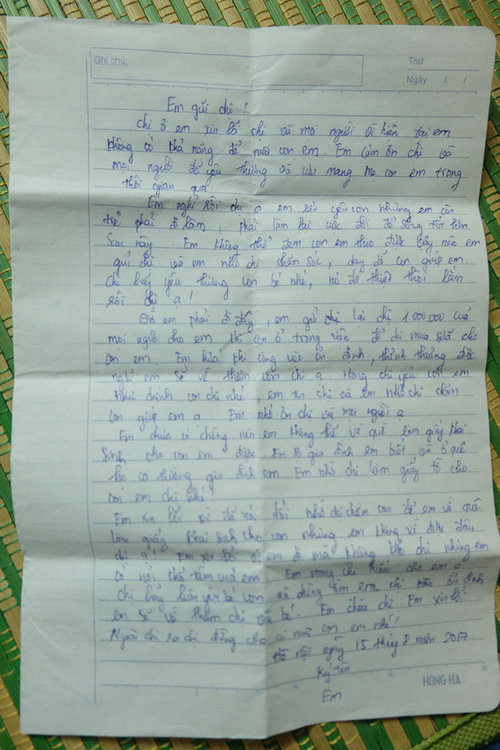 Ghi chúc
Thứ
Ngày / /
Em gửi chị!
chị ơi em xin lỗi chị và mọi người vì hiện tại em
không có khả năng để nuôi con em. Em cảm ơn chị và
mọi người đã yêu thương và cưu mang mẹ con em trong
thời gian qua
Em nghĩ rồi chị ạ em rất yêu con nhưng em còn
trẻ phải đi làm, phải làm lại cuộc đời để sống tốt hơn
Sau này. Em không thể đem con em theo được nên em
gửi chị và em nhờ chị chăm sóc, dạy dỗ con giúp em
chị hãy yêu thương con bé nhé, nó đã thiệt thòi lắm
rồi chị ạ!
Giờ em phải đi đây, em gửi chị lại chị 1.000.000 của
mọi người cho em khi em ở trong viện để chị mua sữa cho
con em. Em khi công việc ổn định, thỉnh thoảng được
nghỉ em sẽ về thăm con chị ạ. Mong chị yêu con em
như chính con chị nhé, em tin chị và em nhờ chị chăm
con giúp em ạ. Em nhớ ơn chị và mọi người ạ
Em chưa có chồng nên em không thể về quê làm giấy khai
Sinh cho con em được. gia đình em biết và ở quê
họ dị gia đình em. Em nhờ chị làm giấy tờ cho
con em chị nhé!
Em xin lỗi vì đã nói dối nhờ chị chăm con để em về quê
làm giấy khai sinh cho con nhưng em không về được đâu
chị ạ! Em xin lỗi vì em đi mà không chị nhưng em
có nỗi khổ tâm của em. Em mong chị hiểu cho em ạ
chị hãy bé con và đừng tìm em, chị ổn định
em sẽ về thăm chị và bé. Em chào chị Em xin lỗi.
Người chị nuôi con em nhé!
Hà Nội ngày 15 tháng 8 năm 2017
Ký tên
HONG HA
Em